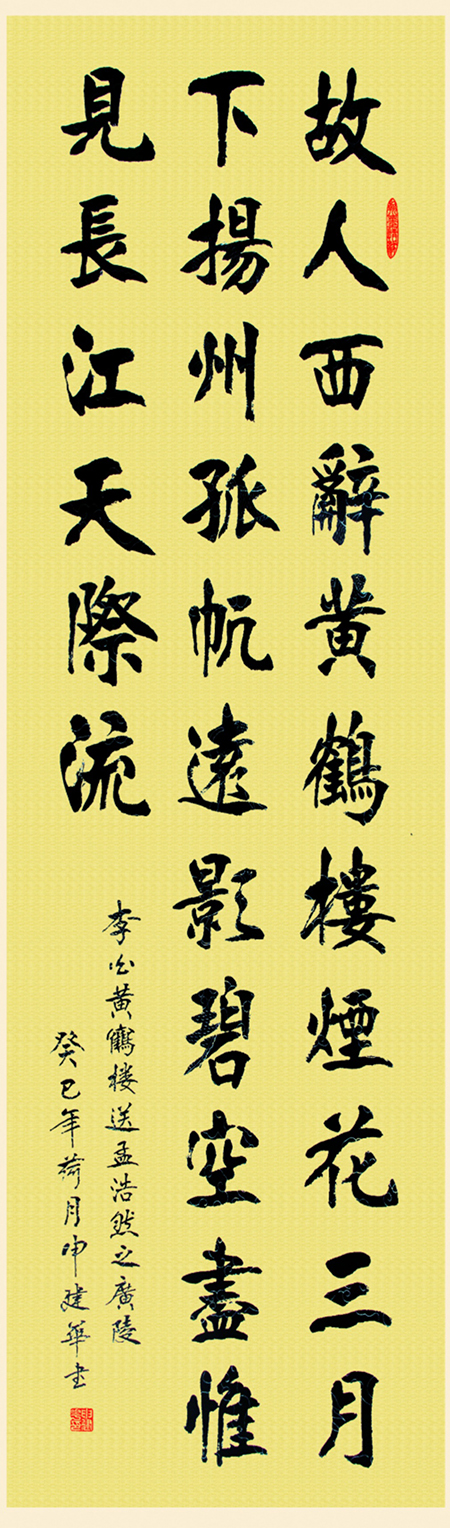 故人西辭黄鶴樓煙花三月
下揚州孤帆遠影碧空盡惟
見長江天際流
李白黄鶴楼送孟浩然之廣陵
癸巳年荷月申建華书